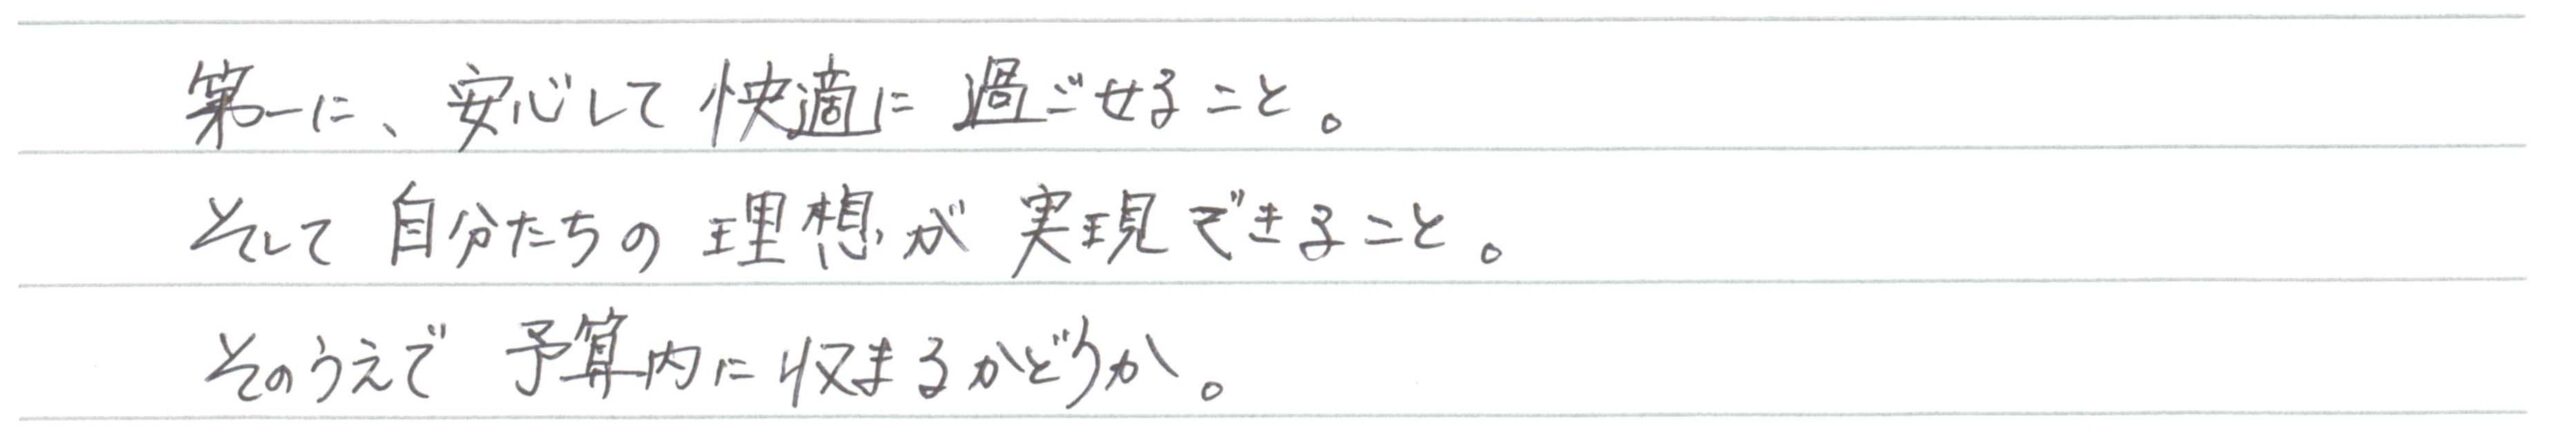 第一に、安心して快適に過ごせること。
そして自分たちの理想が実現できること。
そのうえで予算内に収まるかどうか。